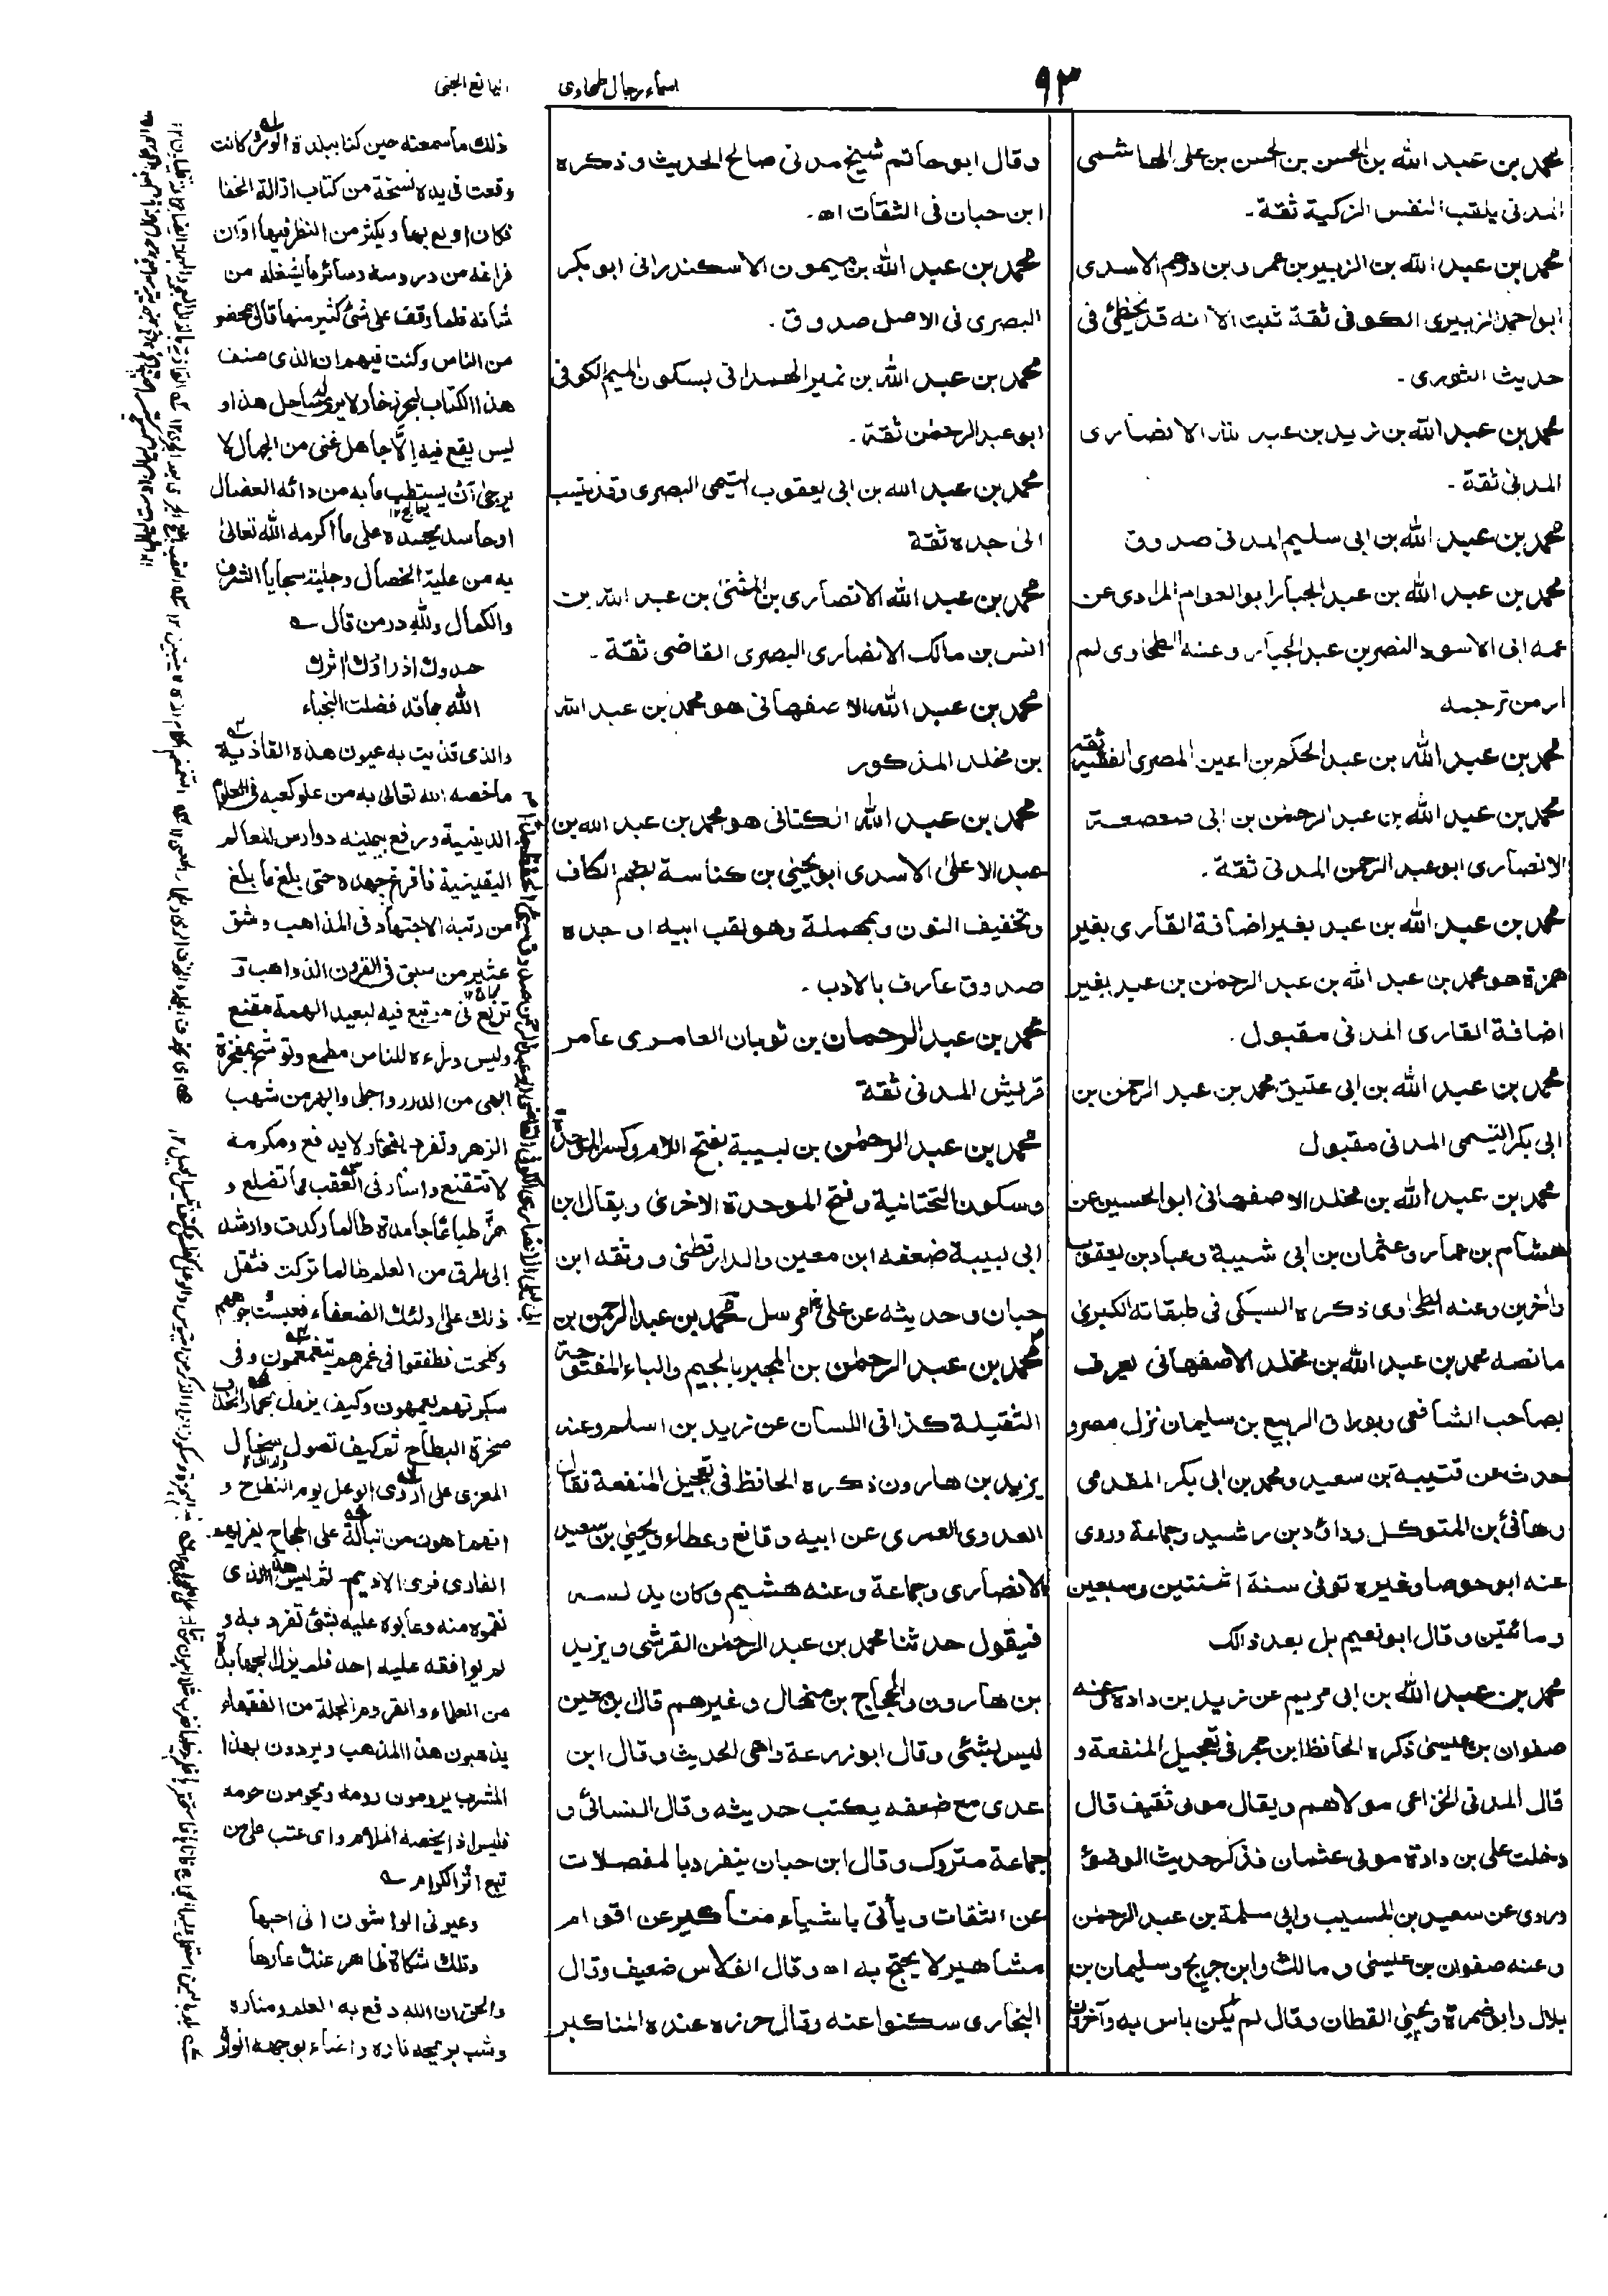 ٩٣
اسماء رجال طحاوى
اليانع الجنى
محمد بن عبد الله بن الحسن بن الحسن بن على الهاشمى
المدنى يلقب النفس الزكية ثقة۔
محمد بن عبد الله بن الزبير بن عمرو بن درهم الاسدى
ابو احمد الزبيرى الكوفى ثقة ثبت الا انه قد يخطئ فى
حديث الثورى۔
محمد بن عبد الله بن زيد بن عبد الله الانصارى
المدنى ثقة۔
محمد بن عبد الله بن ابى سليم المدنى صدوق
محمد بن عبد الله بن عبد الجبار ابو العوام المرادى عن
عمه ابى الاسود النصر بن عبد الجبار وعنه الطحاوى لم
ار من ترجمه
محمد بن عبد الله بن عبد الحكم بن اعين المصرى الفقيه ثقه
محمد بن عبد الله بن عبد الرحمٰن بن ابى صعصعة
الانصارى ابو عبد الرحمن المدنى ثقة۔
محمد بن عبد الله بن عبد بغير اضافة القارى بغير
همزة هو محمد بن عبد الله بن عبد الرحمٰن بن عبد بغير
اضافة القارى المدنى مقبول۔
محمد بن عبد الله بن ابى عتيق محمد بن عبد الرحمٰن بن
ابى بكر التيمى المدنى مقبول
محمد بن عبد الله بن مخلد الاصفهانى ابو الحسين عن
هشام بن عمار وعثمان بن ابى شيبة وعباد بن يعقوب
وآخرين وعنه الطحاوى ذكره السبكى فى طبقاته الكبرىٰ
ما نصه محمد بن عبد الله بن مخلد الاصفهانى يعرف
بصاحب الشافعى وبوراق الربيع بن سليمان نزل مصر و
حدث عن قتيبة بن سعيد ومحمد بن ابى بكر المقدمى
وهانئ بن المتوكل وداؤد بن رشيد وجماعة وروى
عنه ابو عوصا وغيره توفى سنة اثنتين وسبعين
ومائتين وقال ابو نعيم بل بعد ذالك
محمد بن عبد الله بن ابى مريم عن زيد بن دادة وعنه
صفوان بن عيسىٰ ذكره الحافظ ابن حجر فى تعجيل المنفعة و
قال المدنى الخزاعى مولاهم ويقال مولى ثقيف قال
دخلت على بن دادة مولى عثمان فذكر حديث الوضوء
وروى عن سعيد بن المسيب وابى سلمة بن عبد الرحمٰن
وعنه صفوان بن عيسىٰ ومالك وابن جريج وسليمان بن
بلال وابو ضمرة ويحيٰى القطان وقال لم يكن باس به وآخرون
وقال ابو حاتم شيخ مدنى صالح الحديث وذكره
ابن حبان فى الثقات اه۔
محمد بن عبد الله بن ميمون الاسكندرانى ابو بكر
البصرى فى الاصل صدوق۔
محمد بن عبد الله بن نمير الهمدانى بسكون الميم الكوفى
ابو عبد الرحمٰن ثقة۔
محمد بن عبد الله بن ابى يعقوب التيمى البصرى وقد ينسب
الى جده ثقة
محمد بن عبد الله الانصارى بن المثنىٰ بن عبد الله بن
انس بن مالك الانصارى البصرى القاضى ثقة۔
محمد بن عبد الله الاصفهانى هو محمد بن عبد الله
بن مخلد المذكور
محمد بن عبد الله الكنانى هو محمد بن عبد الله بن
عبد الاعلىٰ الاسدى ابو يحيٰى بن كناسة بضم الكاف
وتخفيف النون وبمهملة وهو لقب ابيه او جده
صدوق عارف بالادب۔
محمد بن عبد الرحمان بن ثوبان العامرى عامر
قريش المدنى ثقة
محمد بن عبد الرحمٰن بن لبيبة بفتح اللام وكسر الموحدة
وسكون التحتانية وفتح الموحدة الاخرىٰ ويقال ابن
ابى لبيبة ضعفه ابن معين والدارقطنى ووثقه ابن
حبان وحديثه عن على مرسل محمد بن عبد الرحمن بن
محمد بن عبد الرحمٰن بن المجبر بالجيم والباء المفتوحة
الثقيلة كذا فى اللسان عن زيد بن اسلم وعنه
يزيد بن هارون ذكره الحافظ فى تعجيل المنفعة فقال
العدوى العمرى عن ابيه ونافع وعطاء ويحيٰى بن سعيد
الانصارى وجماعة وعنه هشيم وكان يدلسه
فيقول حدثنا محمد بن عبد الرحمٰن القرشى ويزيد
بن هارون والحجاج بن منهال وغيرهم قال ابن معين
ليس بشئى وقال ابو زرعة واهى الحديث وقال ابن
عدى مع ضعفه يكتب حديثه وقال النسائى و
جماعة متروك وقال ابن حبان ينفرد بالمفصلات
عن الثقات ويأتى باشياء مناكير عن اقوام
مشاهير لا يحتج به اه وقال الفلاس ضعيف وقال
البخارى سكتوا عنه وقال حرزه عنده المناكير
ذلك ما سمعته حين كنا ببلدة الور كانت
وقعت فى يده نسخة من كتاب ازالة الخفا
فكان اولع بها ويكثر من النظر فيها اوان
فراغه من دروسه وسائر ما يشغله من
شانه فلما وقف على شئ كثير منها قال بمحضر
من الناس وكنت فيهم ان الذى صنف
هذا الكتاب لبحر زخار لا يرى له ساحل هذا و
ليس يقع فيه إلّا جاهل غنى من الجهال لا
يرجىٰ أن يستطب مابه من دائه العضال
او حاسد يحسده على ما اكرمه الله تعالىٰ
به من علية الخصال وجلية سجايا الشرف
والكمال ولله در من قال
حسدوك اذ راوك اثرك
الله بما قد فضلت النجباء
والذى قذيت به عيون هذه القاذية
ما خصه الله تعالى به من علو كعبه فى العلوم
الدينية ورفع بيمينه دوارس المعالم
اليقينية فافرغ جهده حتى بلغ ما بلغ
من رتبة الاجتهاد فى المذاهب وشق
عثير من سبق فى القرون الذواهب و
تربع فى مرتبع فيه لبعيد الهمة مقنع
وليس وراءه للناس مطمع وتوشح بمفخرة
ابهى من الدرر واجلى وابهر من شهب
الزهر وتفرد بفخار لا يدفع ومكرمة
لا تتقنع واسار فى العقب مما تضلع و
هزّ طباعًا جامدة طالما ركدت وارشد
إلى طرق من العلم طالما تركت فثقل
ذلك على اولئك الضعفاء فعبست وجوههم
وكلحت فطفقوا فى غمرهم يتغمغمون وفى
سكرتهم يعمهون وكيف يزول بحمار الخذف
صخرة البطاح ثم كيف تصول سخال
المعزى على اروى الوعل يوم النطاح و
انهما هون من تبالة على الحجاج يفرايهما
الفارى فرى الاديم ثم ليس هذا الذى
نقموه منه وعابوه عليه بشئ تفرد به و
لم يوافقه عليه احد فلم يزل الجهابذة
من العلماء والقروم الجلة من الفقهاء
يذهبون هذا المذهب ويردون بهذا
المشرب يرومون رومه ويحومون حومه
فليس اذا يخصه الملام واى عتب على من
تبع اثر الكرام
وعيرنى الواشون انى احبها
وتلك شكاة ظاهر عنك عارها
والحق ان الله رفع به العلم ومناره
وشب بريحه ناره واضاء بوجهه انواره